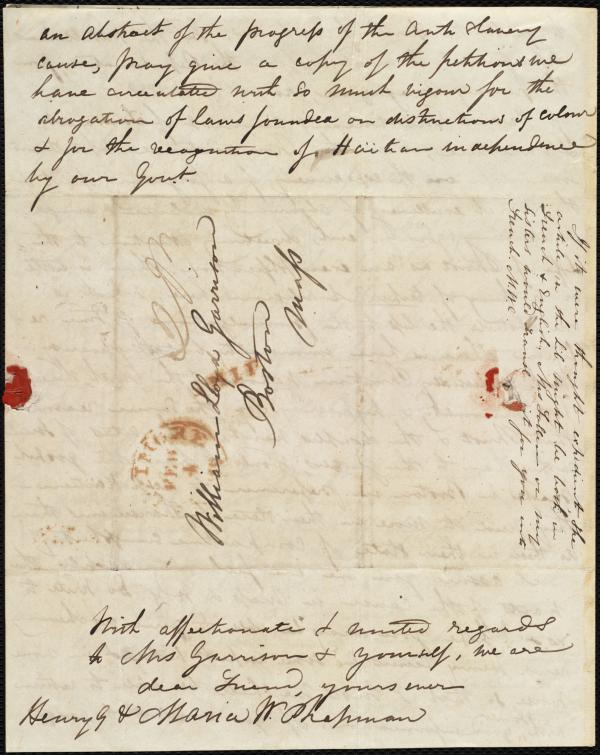 an abstract of the progress of the Anti Slavery
cause, pray give a copy of the petitions we
have circulated with so much vigour for the
abrogation of laws founded on distinctions of colour
& for the recognition of Haitian independence
by our Govt.
If it were thought expedient the
article in the Lib might be both in
French & English. Mrs Follen or my
sisters would translate it for you into
French. MWC
William Lloyd Garrison
Boston
Mass
FEB
4
With affectionate & united regards
to Mrs Garrison & yourself, we are
dear friend, yours ever
Henry G & Maria W. Chapman